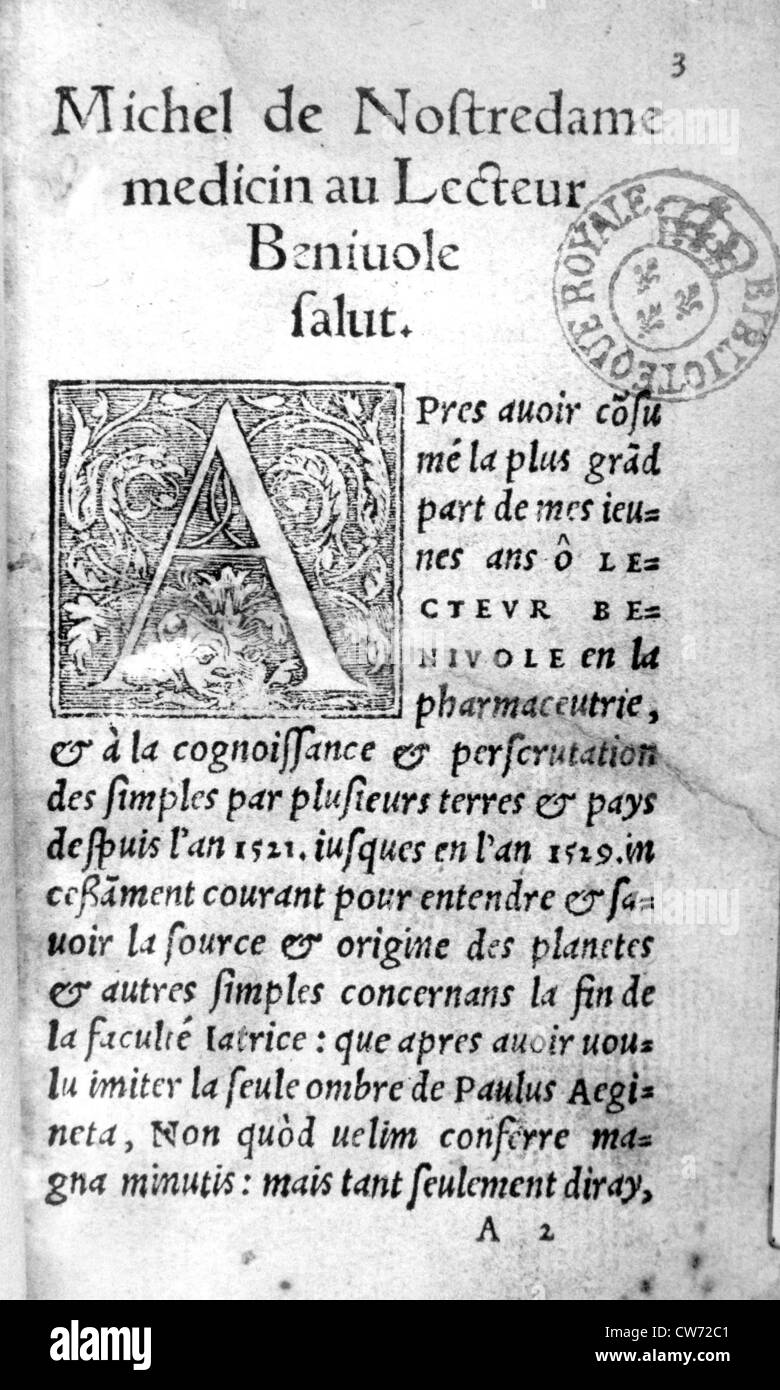 3
Michel de Noſtredame
medicin au Lecteur
Beniuole
ſalut.
BIBLIOTEQUE ROYALE
APres auoir cõſu
mé la plus grãd
part de mes ieu=
nes ans ô LE=
CTEVR BE=
NIVOLE en la
pharmaceutrie,
& à la cognoiſſance & perſcrutation
des ſimples par pluſieurs terres & pays
deſpuis l'an 1521. iuſques en l'an 1529. in
ceßãment courant pour entendre & ſa=
uoir la ſource & origine des planetes
& autres ſimples concernans la fin de
la faculté Iatrice : que apres auoir uou=
lu imiter la ſeule ombre de Paulus Aegi=
neta, Non quòd uelim conferre ma=
gna minutis : mais tant ſeulement diray,
A 2
alamy
alamy
alamy
a
a
a
alamy
Image ID: CW72C1
www.alamy.com